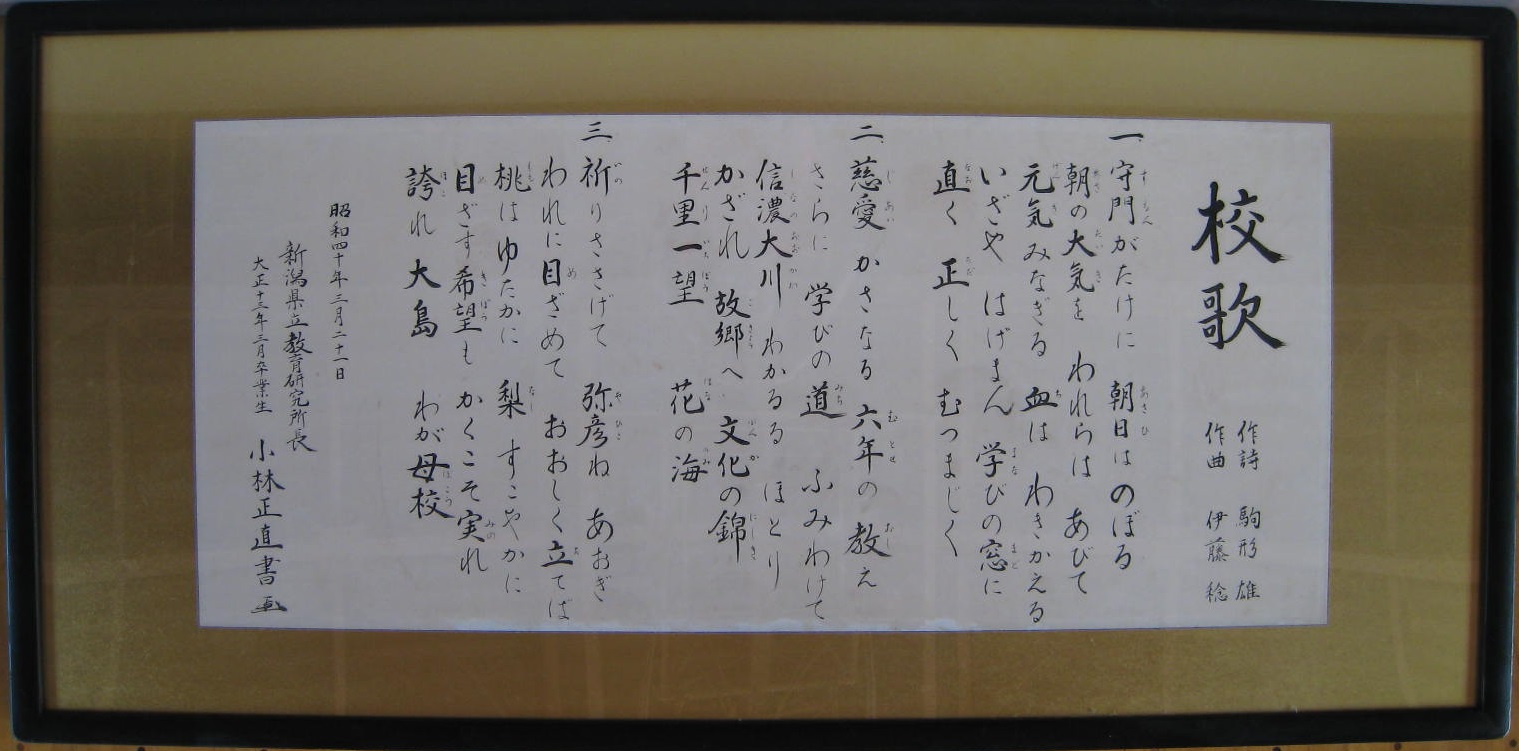 校歌
作詩 駒形 雄
作曲 伊藤 稔
一 守門がたけに 朝日は のぼる
朝の大気を われらは あびて
元気みなぎる 血は わきかえる
いざや はげまん 学びの窓に
直く 正しく むつまじく
二 慈愛 かさなる 六年の 教え
さらに 学びの 道 ふみわけて
信濃大川 わかるる ほとり
かざれ 故郷へ 文化の錦
千里一望 花の海
三 祈りささげて 弥彦ね あおぎ
われに目ざめて おおしく立てば
桃は ゆたかに 梨 すこやかに
目ざす希望も かくこそ実れ
誇れ 大島 わが母校
昭和四十年三月二十一日
新潟県立教育研究所長
大正十三年三月卒業生 小林正直書